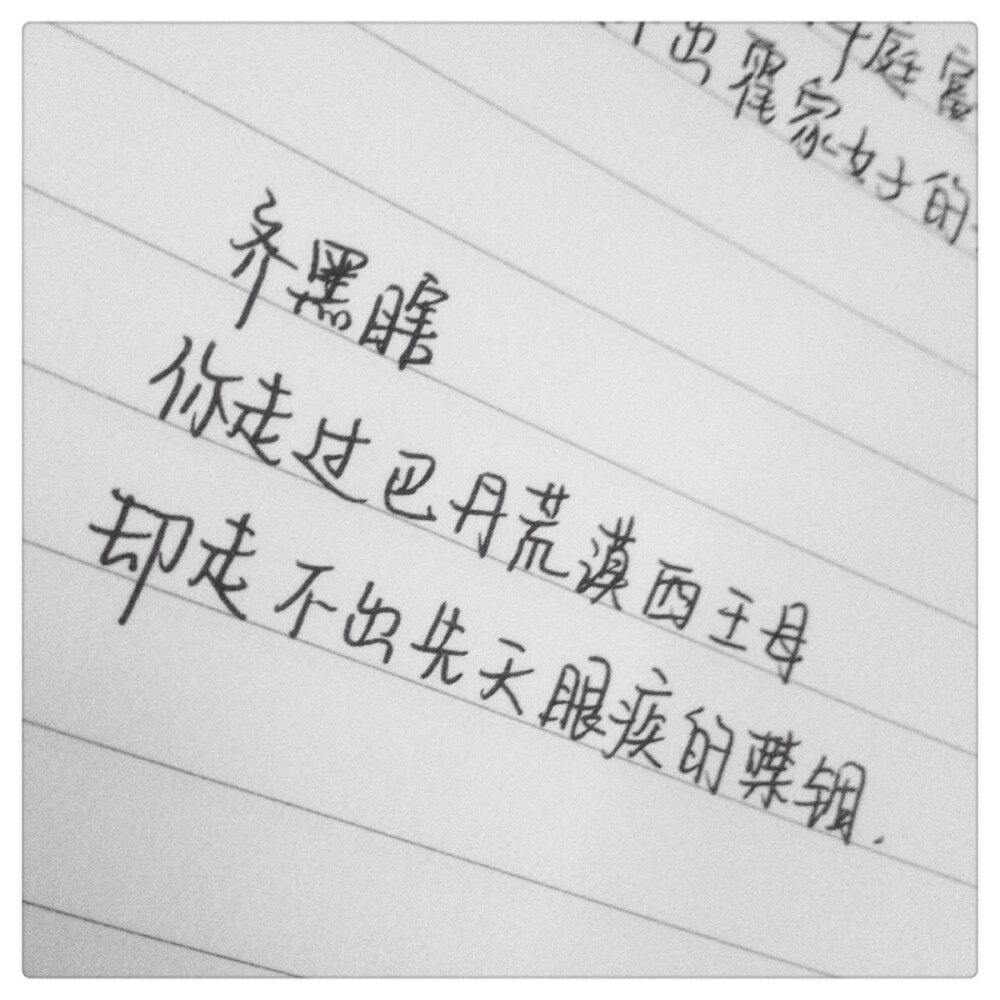 庭富
出霍家女子的
齐黑瞎
你走过巴丹荒漠西王母
却走不出先天眼疾的禁锢.